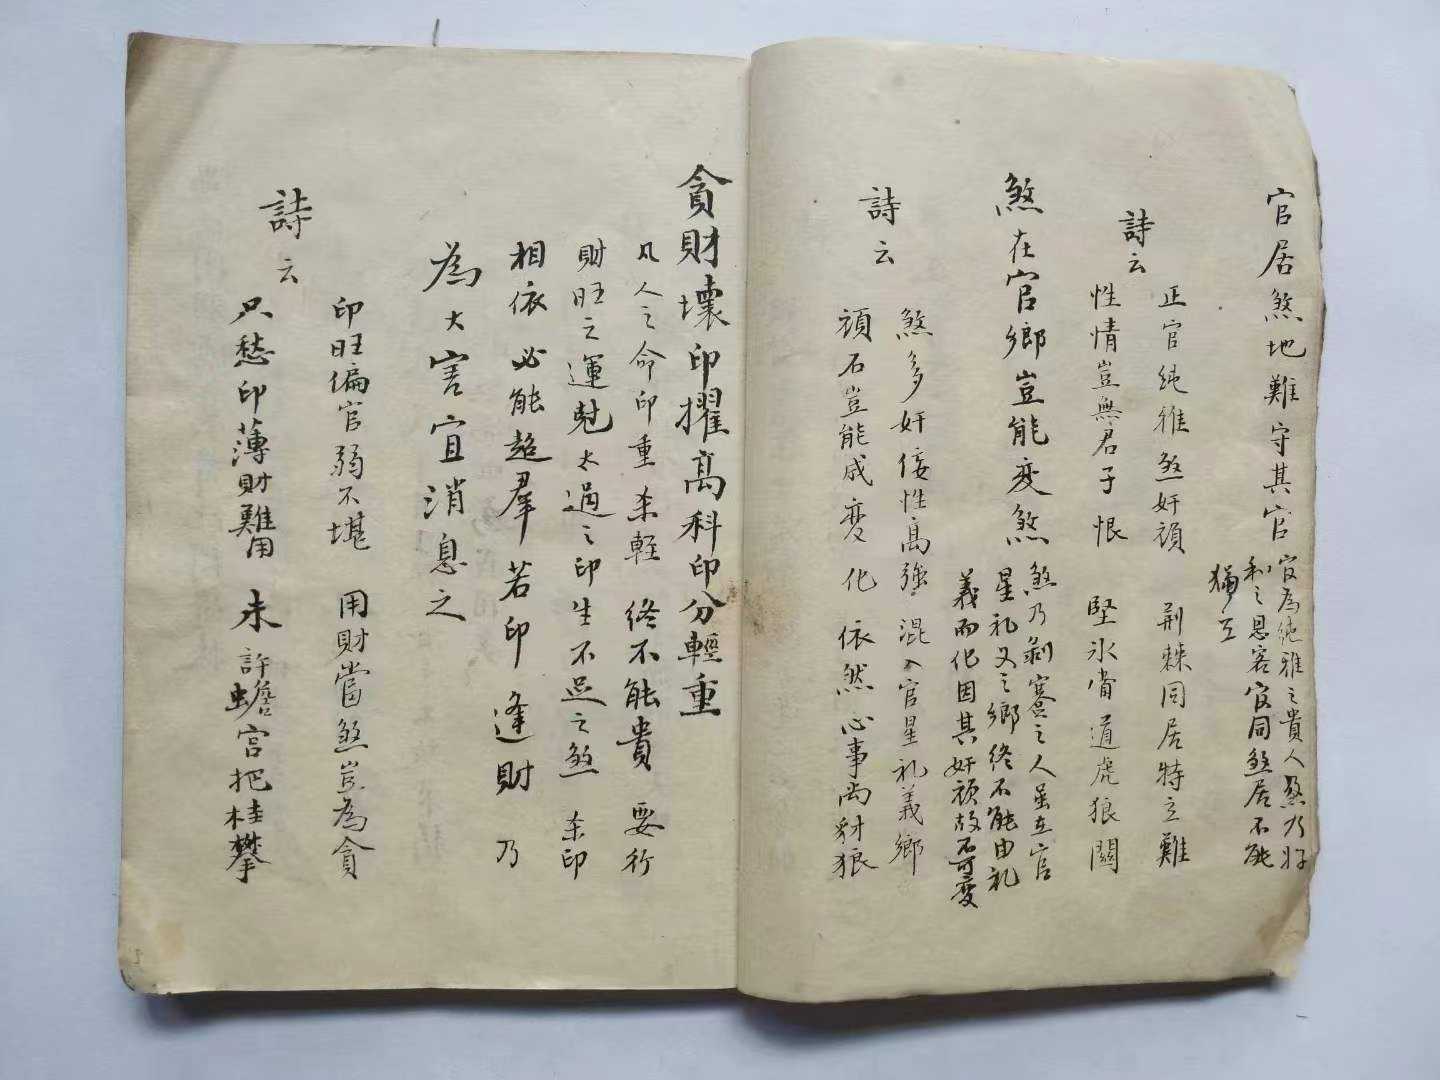 官居煞地難守其官
官為純雅之貴人煞乃奸
利之恩客官同煞居不能
獨立
詩云
正官純雅煞奸頑 荊棘同居特立難
性情豈無君子恨 堅氷當道虎狼關
煞在官鄉豈能变煞
煞乃剥蹇之人虽在官
星礼义之鄉終不能由礼
義而化因其奸頑故不可变
詩云
煞多奸佞性高強 混入官星礼義鄉
頑石豈能成变化 依然心事尚豺狼
貪財壞印擢高科印分輕重
凡人之命印重杀輕 終不能貴 要行
財旺之運尅太過之印生不足之煞 杀印
相依必能超羣若印逢財乃
為大害宜消息之
詩云
印旺偏官弱不堪 用財當煞豈為貪
只愁印薄財難用 未許蟾宮把桂攀